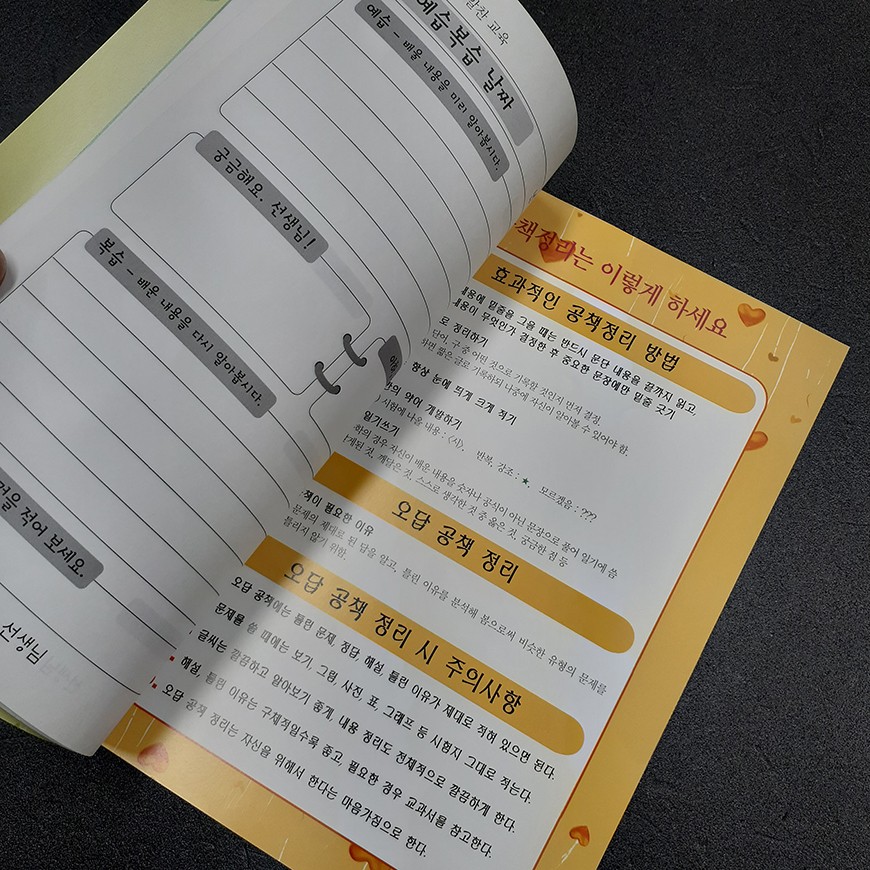 알찬 교육
예습복습 날짜
예습 - 배울 내용을 미리 알아봅시다.
궁금해요. 선생님!
복습 - 배운 내용을 다시 알아봅시다.
적어 보세요.
선생님
책정리는 이렇게 하세요
효과적인 공책정리 방법
내용에 밑줄을 그을 때는 반드시 문단 내용을 끝까지 읽고,
내용이 무엇인가 결정한 후 중요한 문장에만 밑줄 긋기
로 정리하기
단어, 구 중 어떤 것으로 기록할 것인지 먼저 결정.
하면 짧은 글로 기록하되 나중에 자신이 알아볼 수 있어야 함.
항상 눈에 띄게 크게 적기
약어 개발하기
시험에 나올 내용 : <시>, 반복, 강조 : ★ 모르겠음 : ???
일기쓰기
의 경우 자신이 배운 내용을 숫자나 공식이 아닌 문장으로 풀어 일기에 씀
게된 것, 깨달은 것, 스스로 생각한 것 중 옳은 것, 궁금한 점 등
오답 공책 정리
책이 필요한 이유
문제의 제대로 된 답을 알고, 틀린 이유를 분석해 봄으로써 비슷한 유형의 문제를
틀리지 않기 위함.
오답 공책 정리 시 주의사항
오답 공책에는 틀린 문제, 정답, 해설, 틀린 이유가 제대로 적혀 있으면 된다.
문제를 쓸 때에는 보기, 그림, 사진, 표, 그래프 등 시험지 그대로 적는다.
글씨는 깔끔하고 알아보기 좋게, 내용 정리도 전체적으로 깔끔하게 한다.
해설, 틀린 이유는 구체적일수록 좋고, 필요한 경우 교과서를 참고한다.
오답 공책 정리는 자신을 위해서 한다는 마음가짐으로 한다.